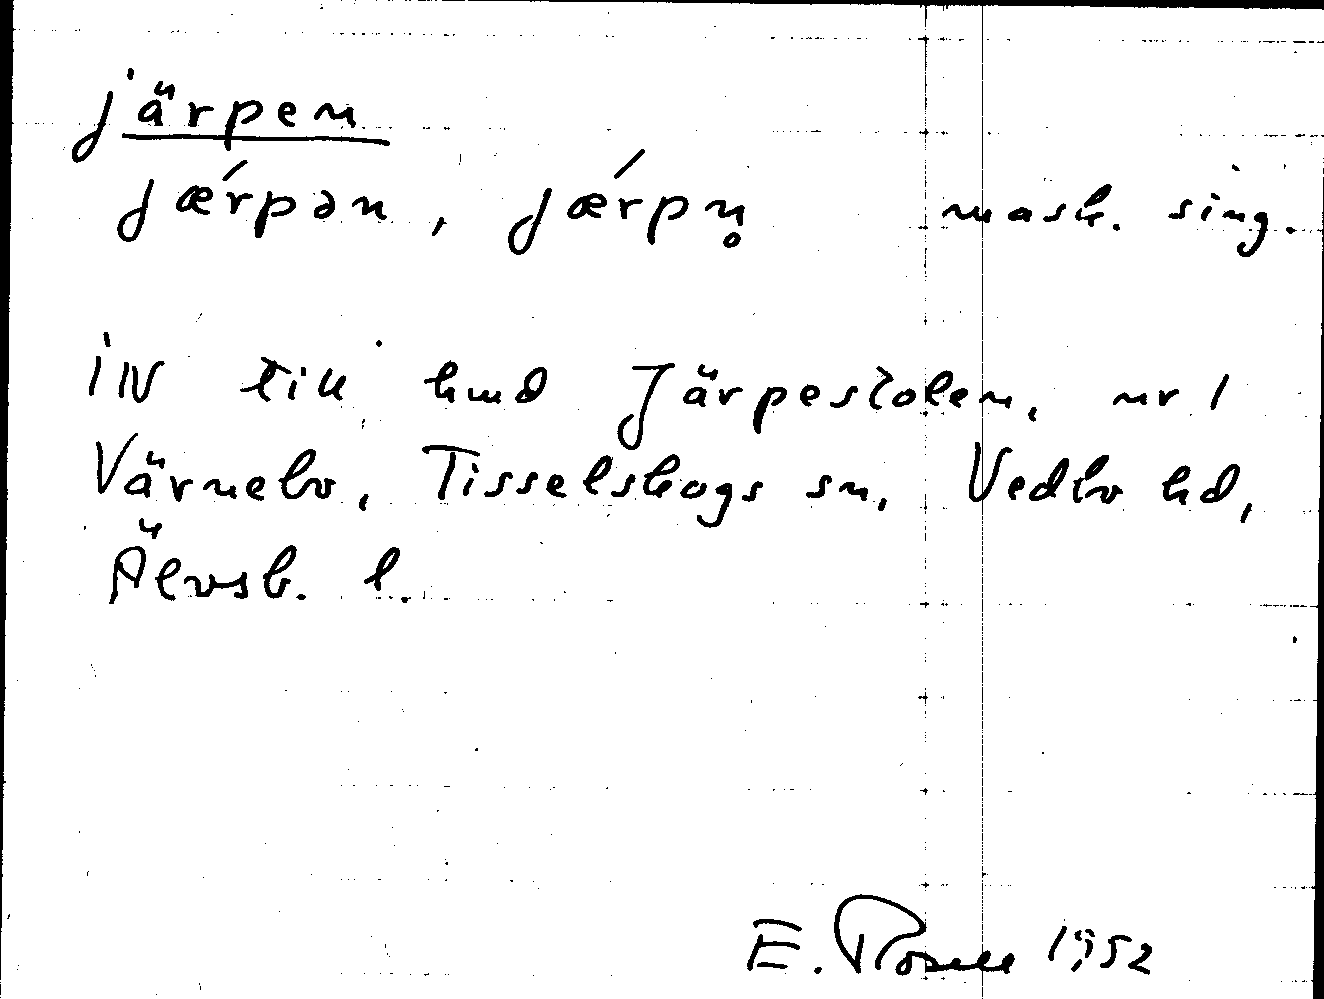 järpen
jǽrpən, jǽrpn̥ mask. sing.
IN till hmd Järpestolen, nr 1
Värnebo, Tisselskogs sn, Vedbo hd,
Älvsb. l.
E. 1952